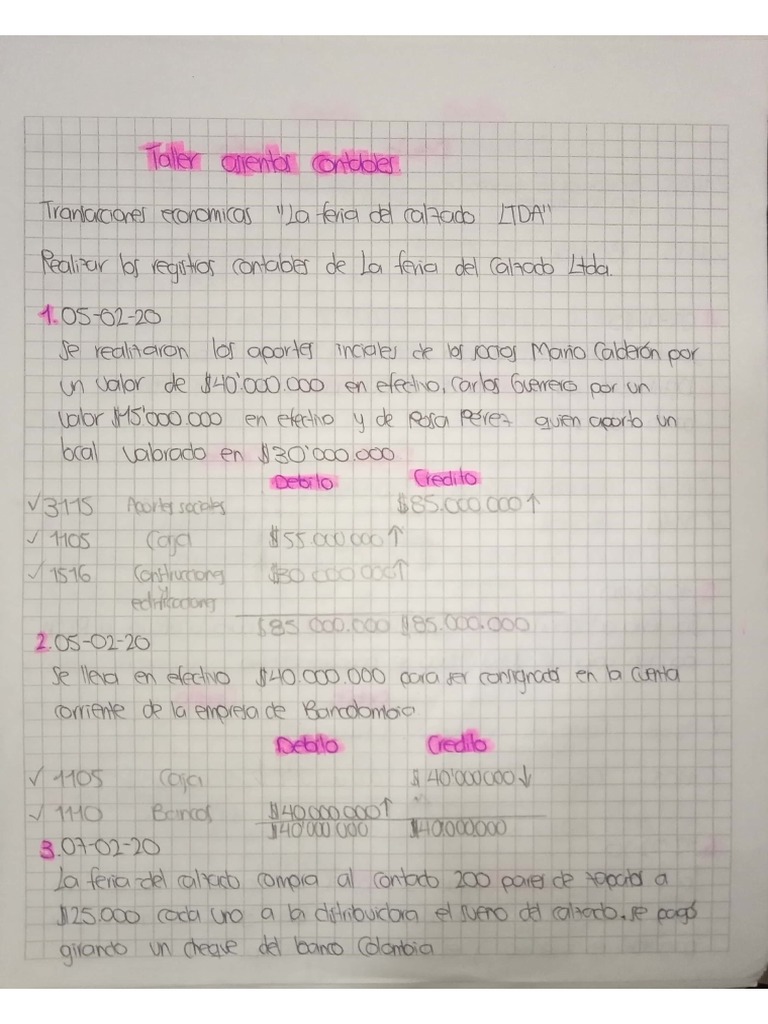 Taller asientos contables.
Tranlacciones economicas "La feria del calzado LTDA"
Realizar los registros contables de La feria del Calzado Ltda.
1. 05-02-20
Se realizaron los aportes inciales de los socios Mario Calderón por
un valor de $40'000.000 en efectivo, Carlos Guerrero por un
valor $15'000.000 en efectivo y de Rosa Pérez quien aporto un
local valorado en $30'000.000
Debito Credito
✓ 3115 Aportes sociales $85.000.000 ↑
✓ 1105 Caja $55.000.000 ↑
✓ 1516 Construcciones $30.000.000 ↑
y
edificaciones
$85.000.000 $85.000.000
2. 05-02-20
Se lleva en efectivo $40.000.000 para ser consignados en la cuenta
corriente de la empresa de Bancolombia
Debito Credito
✓ 1105 Caja $40'000000 ↓
✓ 1110 Bancos $40.000.000 ↑
$40'000'000 $40.000000
3. 07-02-20
La feria del calzado compra al contado 200 pares de zapatos a
$25.000 cada uno a la distribuidora el sueño del calzado, se pagó
girando un cheque del banco Colombia